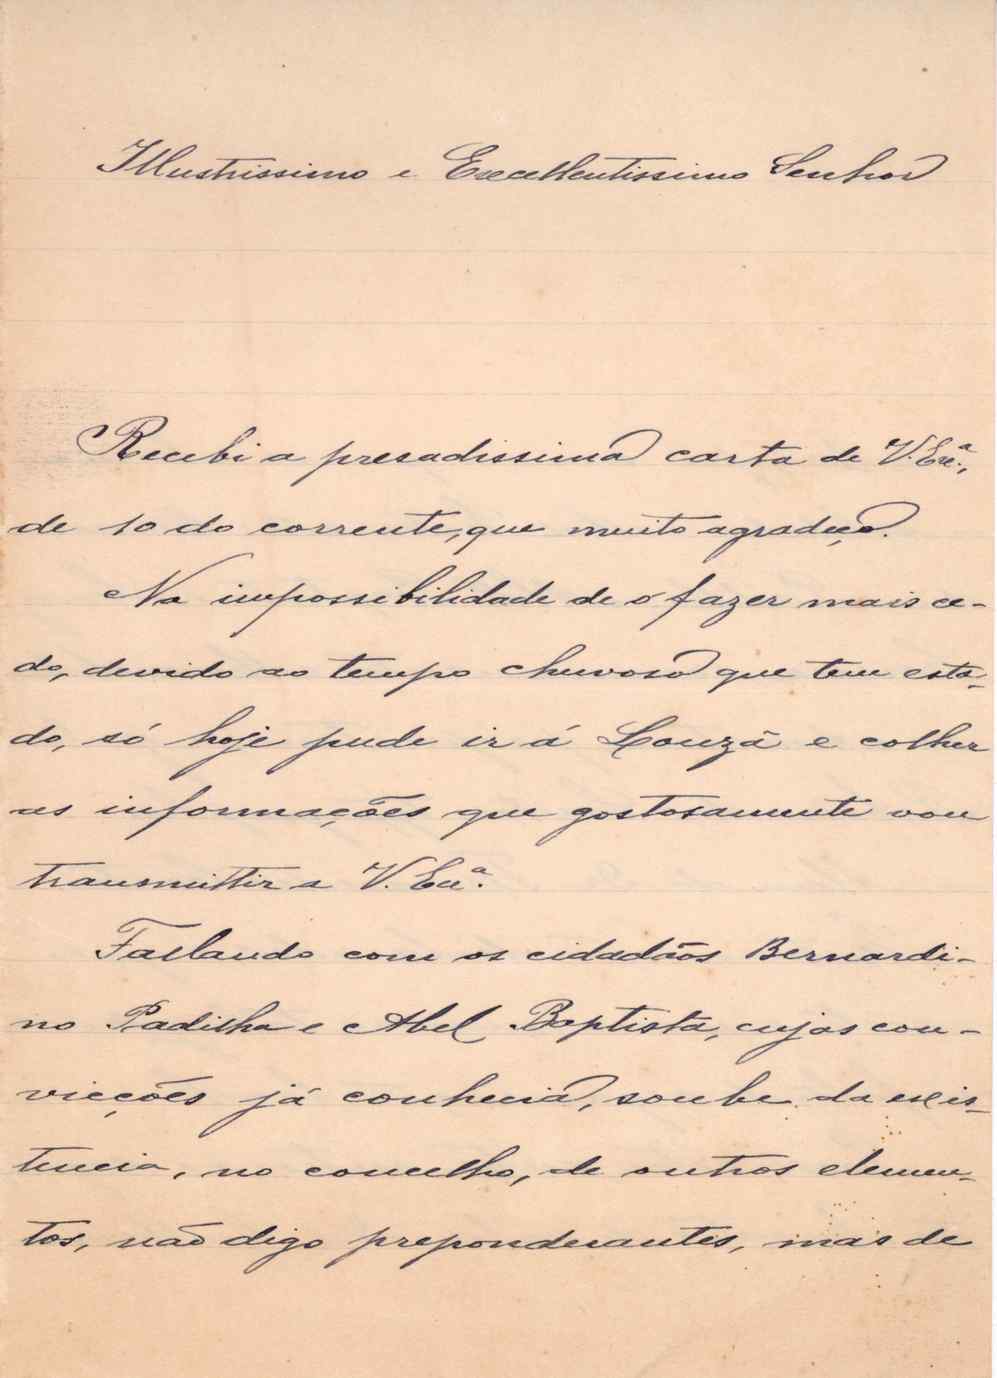 Illustrissimo e Excellentissimo Senhor
Recebi a presadissima carta de V. Exª.,
de 10 do corrente, que muito agradeço.
Na impossibilidade de o fazer mais ce-
do, devido ao tempo chuvoso que tem esta-
do, só hoje pude ir á Louzã e colher
as informações que gostosamente vou
transmittir a V. Exª.
Fallando com os cidadãos Bernardi-
no Padilha e Abel Baptista, cujas con-
vicções já conhecia, soube da exis-
tencia, no concelho, de outros elemen-
tos, não digo preponderantes, mas de